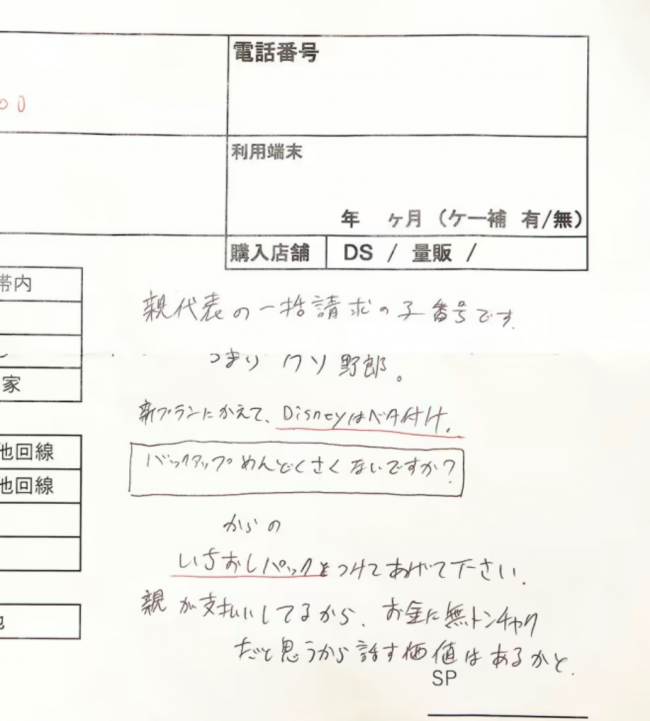 00
電話番号
利用端末
年 ヶ月 (ケー補 有/無)
購入店舗 DS / 量販 /
帯内
家
他回線
他回線
親代表の一括請求の子番号です.
つまりクソ野郎。
新プランにかえて、Disneyはベタ付け.
バックアップめんどくさくないですか?
からの
いちおしパックをつけてあげて下さい.
親が支払いしてるから、お金に無トンチャク
だと思うから話す価値はあるかと.
SP